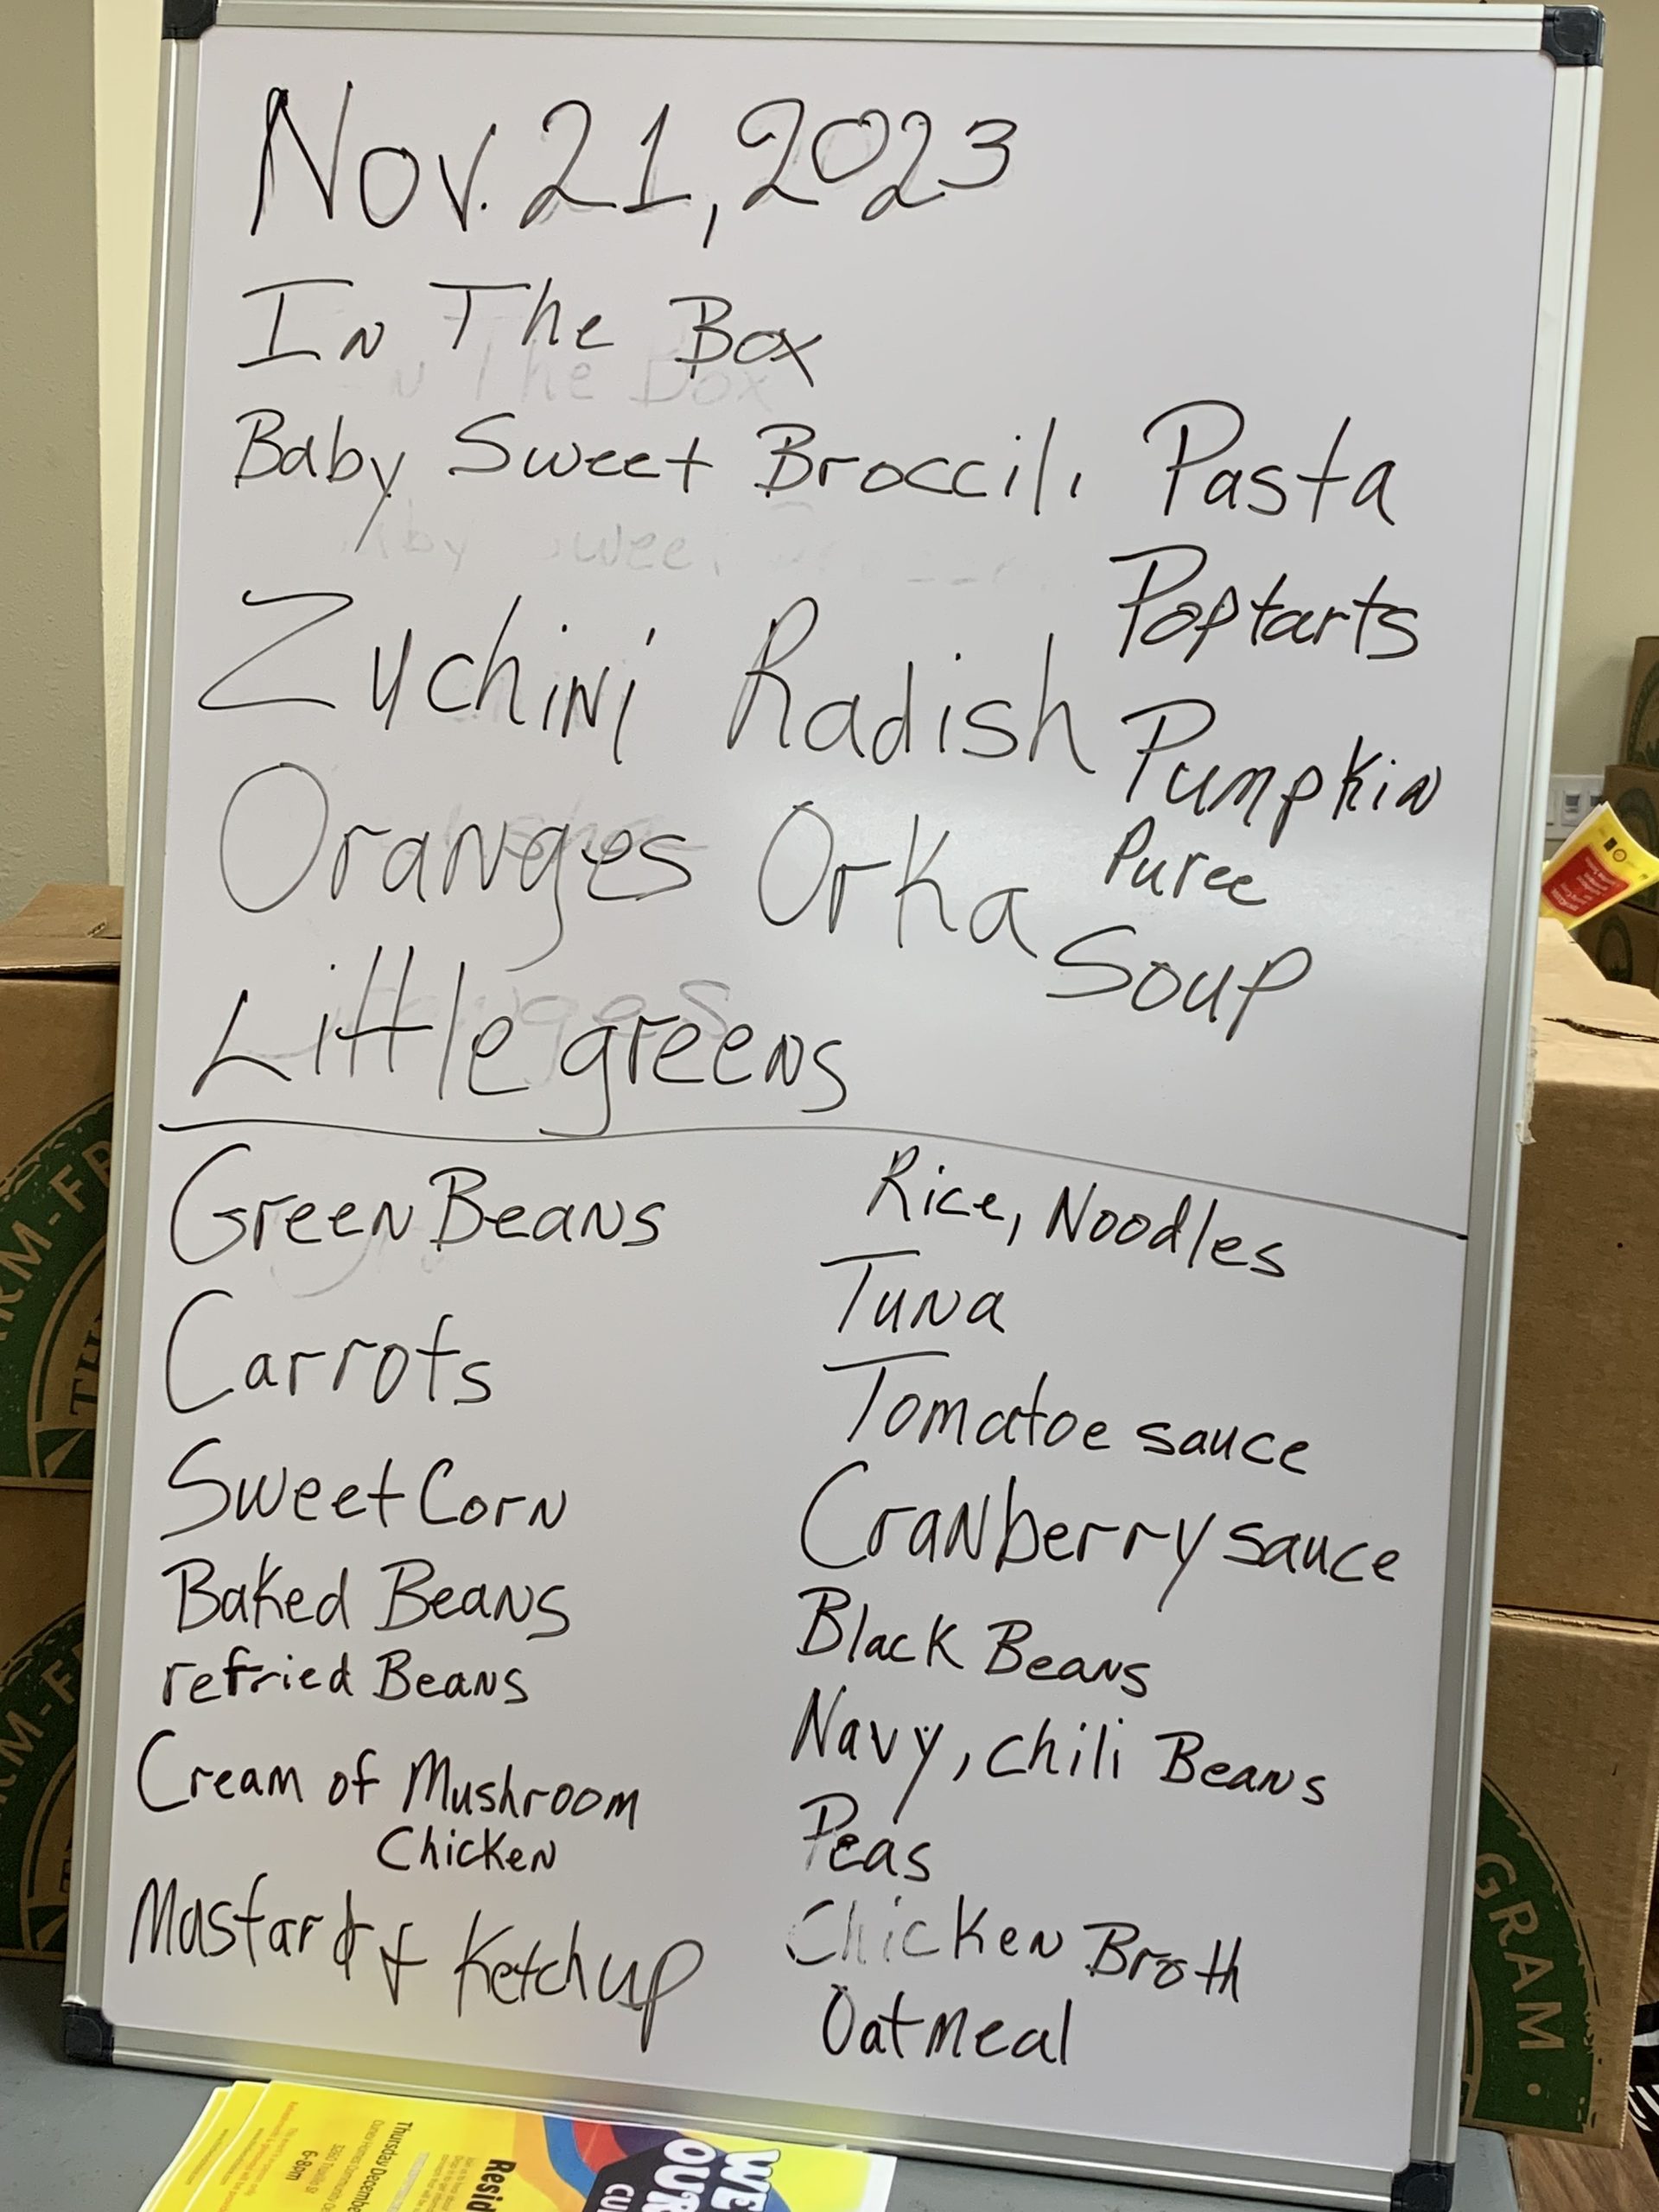 Nov. 21, 2023
In The Box
Baby Sweet Broccili
Zuchini Radish
Oranges Orka
Little greens
Pasta
Poptarts
Pumpkin
Puree
Soup
Green Beans
Carrots
Sweet Corn
Baked Beans
refried Beans
Cream of Mushroom
Chicken
Mustard + Ketchup
Rice, Noodles
Tuna
Tomatoe sauce
Cranberry sauce
Black Beans
Navy, chili Beans
Peas
Chicken Broth
Oatmeal
GRAM
WE
OUR
Resid
Thursday Decembe
6-8pm